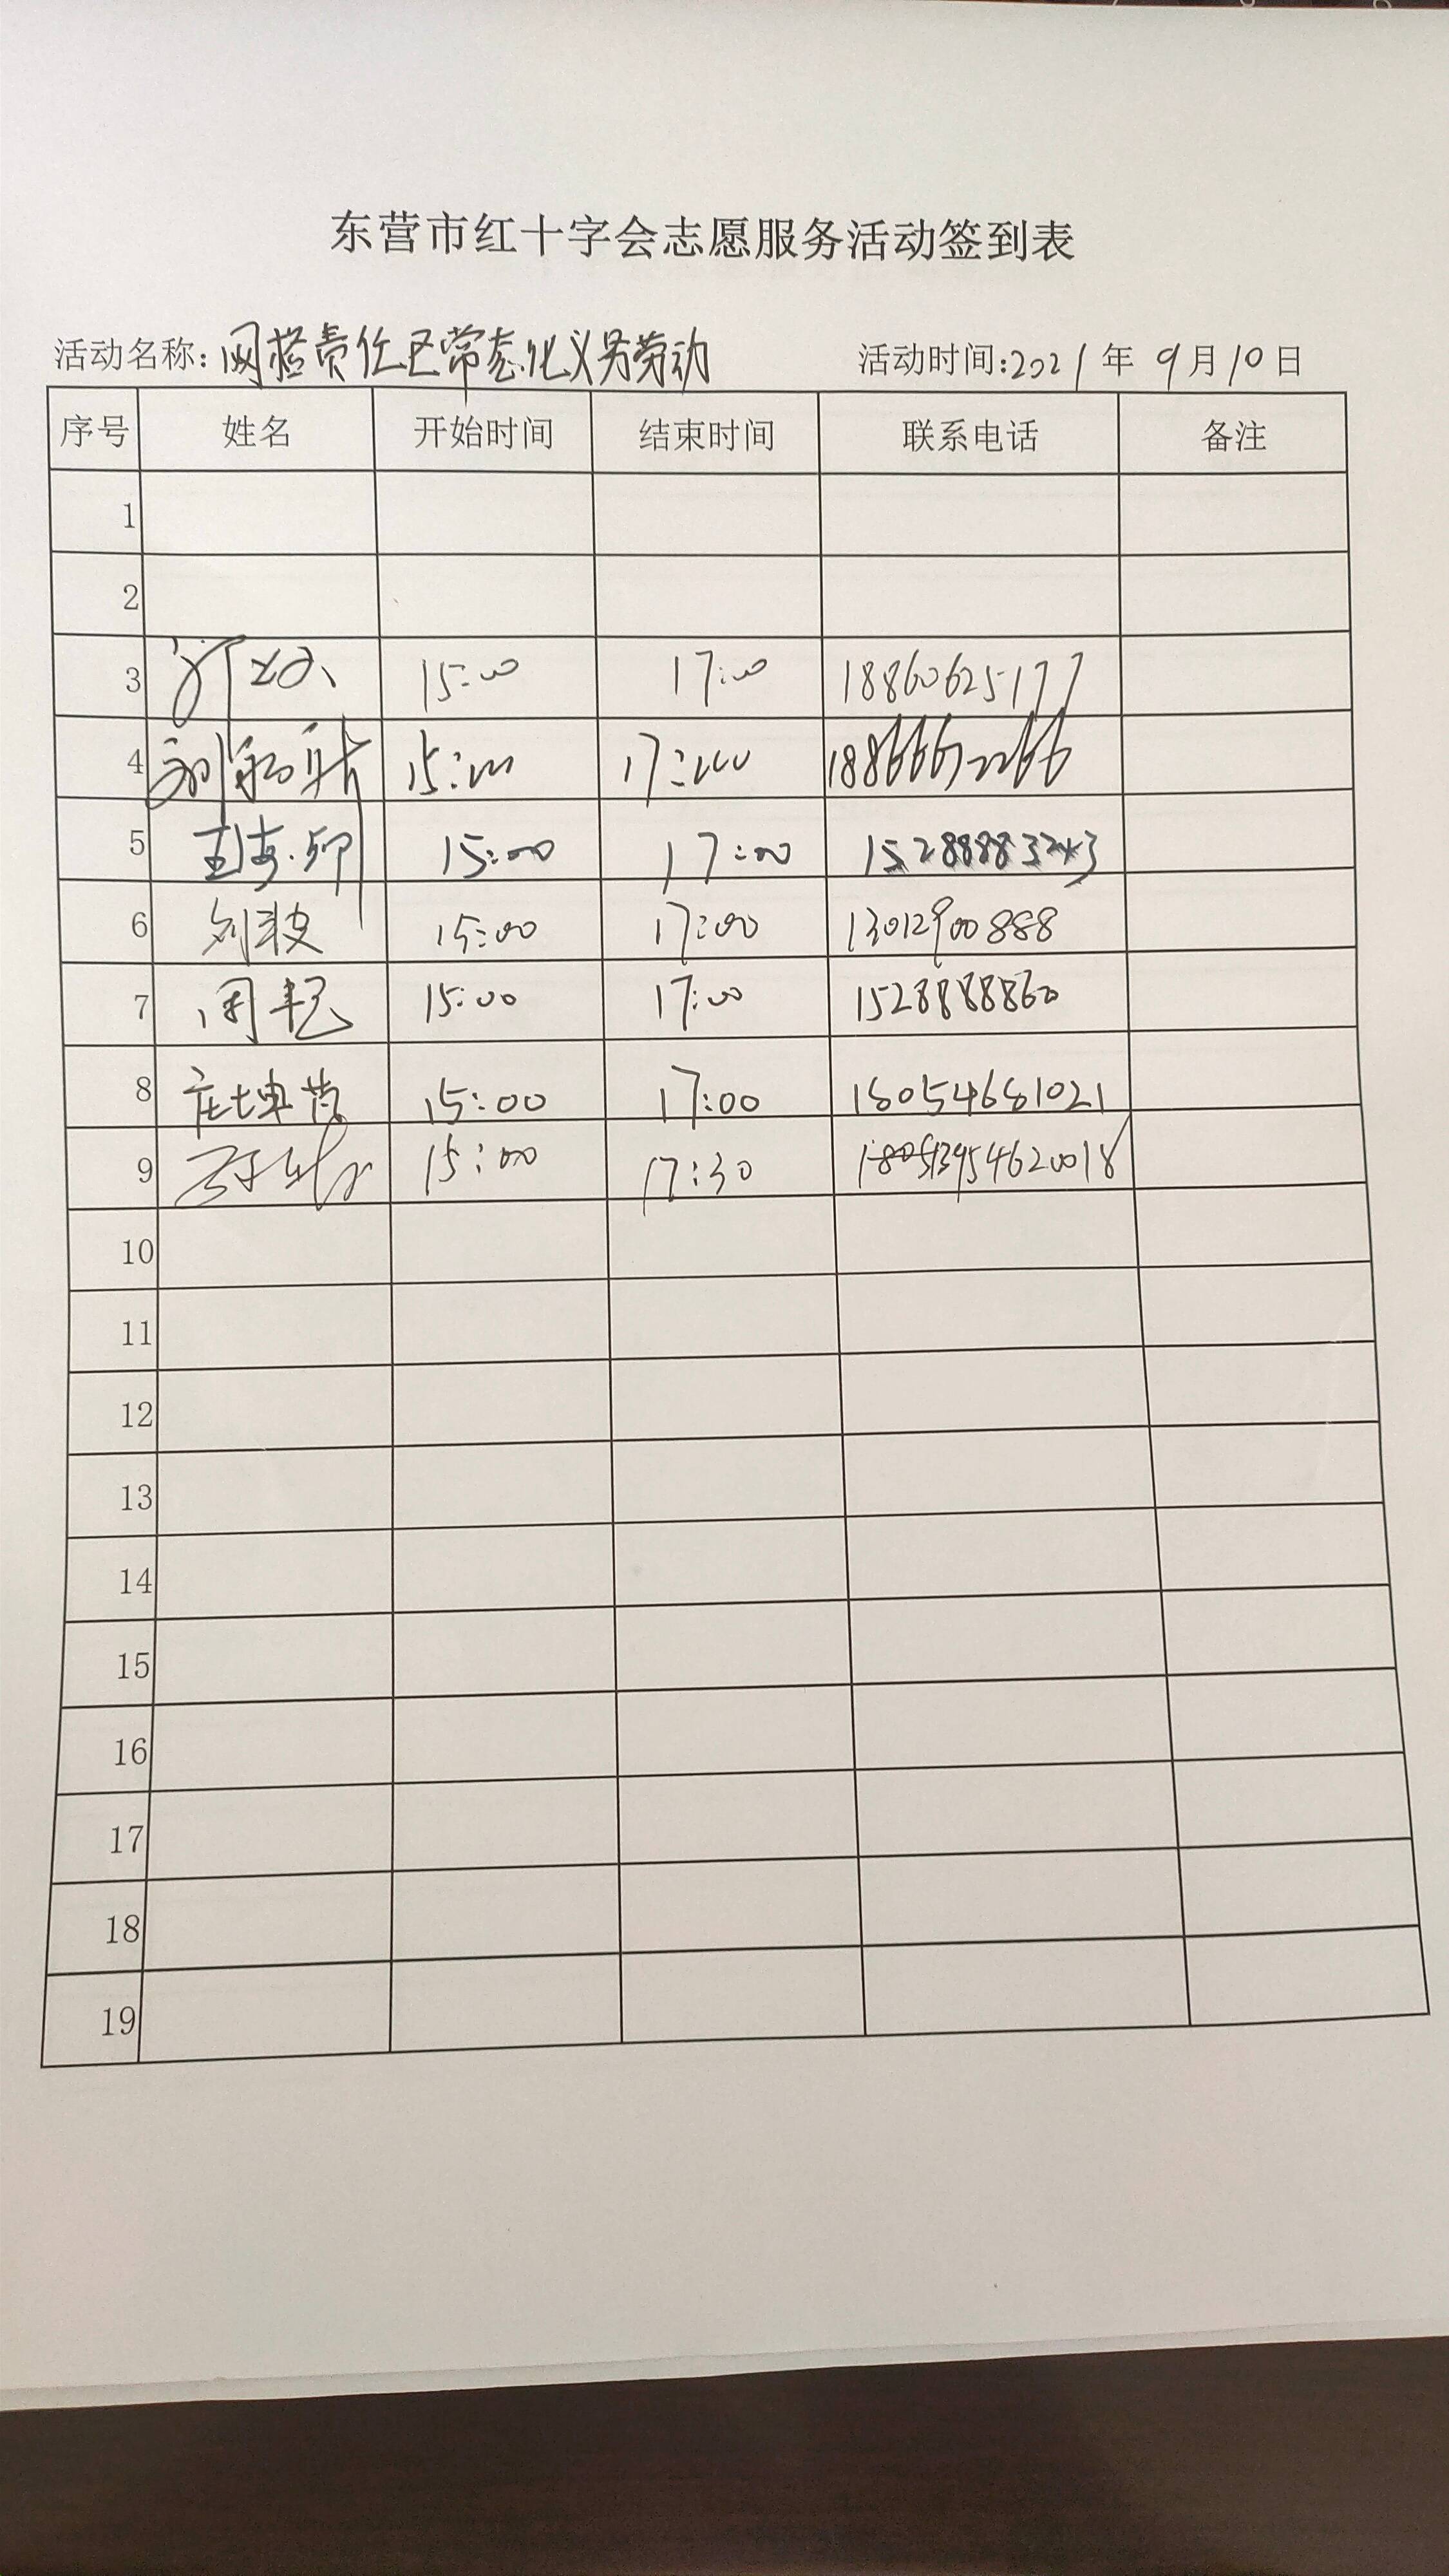 东营市红十字会志愿服务活动签到表
活动名称: 网格责任区常态化义务劳动 活动时间: 2021 年 9 月 10 日
序号 姓名 开始时间 结束时间 联系电话 备注
1
2
3 15:00 17:00 18860625177
4 15:00 17:00
5 15:00 17:00
6 刘波 15:00 17:00 13012900888
7 周艳 15:00 17:00 15288888860
8 庄坤 15:00 17:00 18054681021
9 15:00 17:30
10
11
12
13
14
15
16
17
18
19